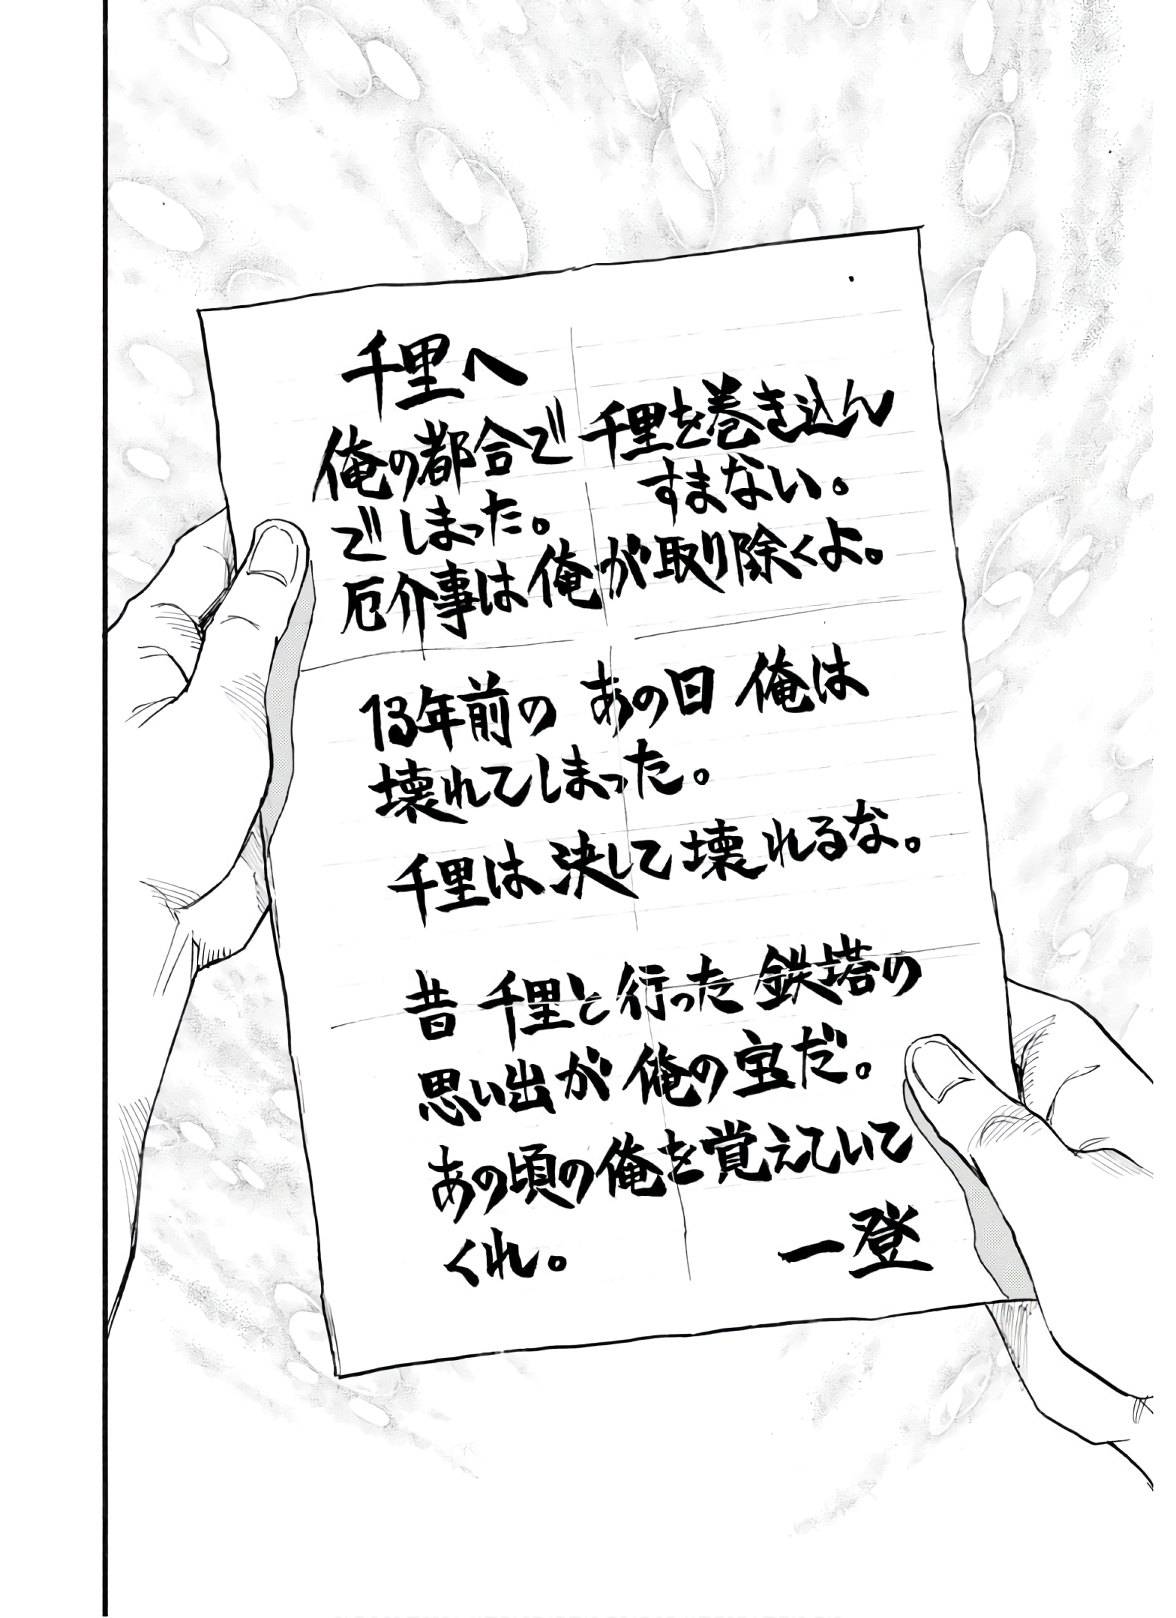 千里へ
俺の都合で 千里を巻き込ん
でしまった。 すまない。
厄介事は俺が取り除くよ。
13年前の あの日 俺は
壊れてしまった。
千里は決して壊れるな。
昔 千里と行った鉄塔の
思い出が俺の宝だ。
あの頃の俺を覚えていて
くれ。 一登